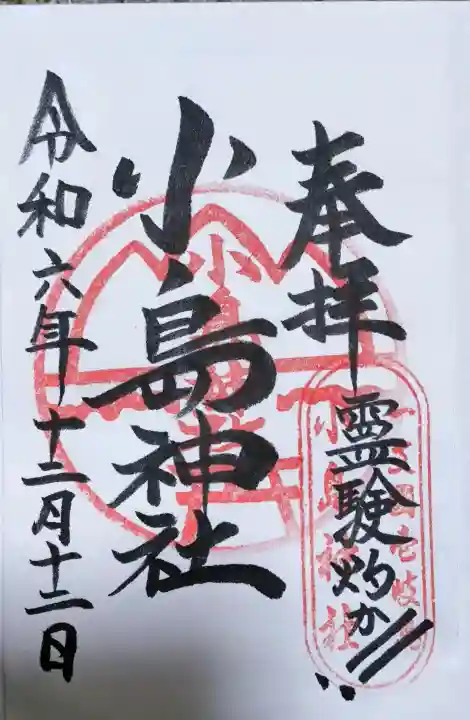 奉拝
霊験灼か!!
小島神社
令和六年十二月十二日
小島神社